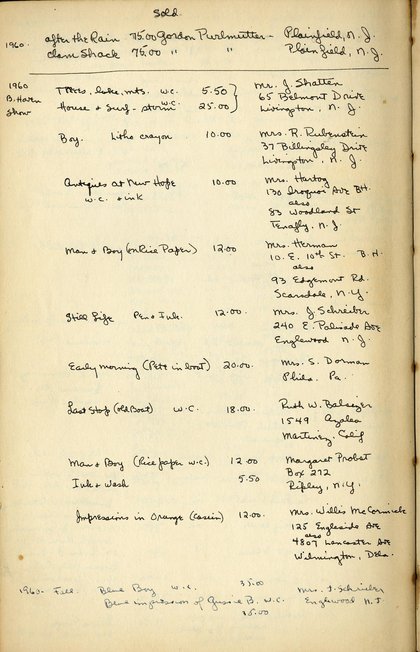 Sold
1960. after the Rain 75.00 Gordon Purlmutter - Plainfield, N.J.
clam Shack 75.00 " " Plainfield, N.J.
1960 B. Haven Show
Trees, lake, mts. w.c. 5.50 } Mr. J. Shatten
House & Surf - storm w.c. 25.00 } 65 Belmont Drive
Livingston, N.J.
Boy. Litho crayon 10.00 Mrs. R. Rubenstein
37 Billingsley Drive
Livingston, N.J.
Antiques at New Hope 10.00 Mrs. Hartog
w.c. & ink 130 Iroquois Ave B.H.
also
83 Woodland St
Tenafly, N.J.
Man & Boy (on Rice Paper) 12.00 Mrs. Herman
10. E. 10th St. B.H.
also
93 Edgemont Rd.
Scarsdale, N.Y.
Still Life Pen & Ink. 12.00. Mrs. J. Schreiber
240 E. Palisade Ave
Englewood N.J.
Early morning (Pete in boat) 20.00. Mrs. S. Dorman
Phila. Pa.
Last Stop (old Boat) w.c. 18.00 Ruth W.
1549 Azalea
Martinez, Calif
Man & Boy (Rice paper w.c.) 12.00 Margaret Probst
Ink & Wash 5.50 Box 272
Ripley, N.Y.
Impressions in Orange (casein) 12.00 Mrs. Willis McCormick
125 Engleside Ave
also
4807 Lancaster Ave
Wilmington, Dela.
1960- Fall. Blue Boy w.c. 35.00 Mrs. J. Schreiber
Blue impression of Gussie B. w.c. Englewood N.J.
35.00